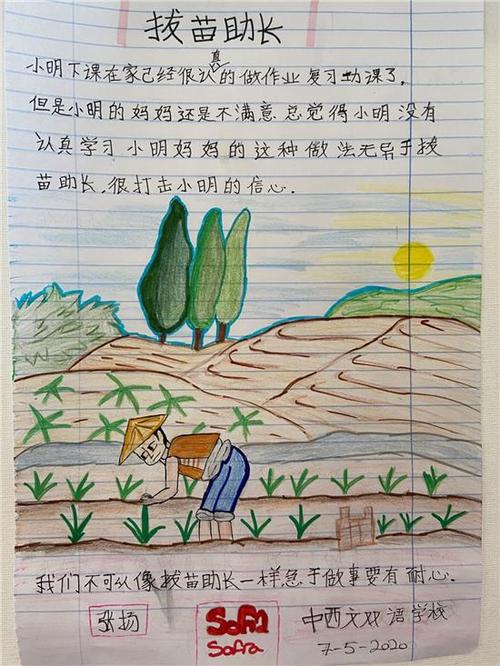 拔苗助长
小明下课在家已经很认真的做作业 复习功课了,
但是小明的妈妈还是不满意 总觉得小明没有
认真学习 小明妈妈的这种做法无异于拔
苗助长,很打击小明的信心.
我们不可以像拔苗助长一样急于做事要有耐心.
张扬
Sofia
Sofra
中西文双语学校
7-5-2020